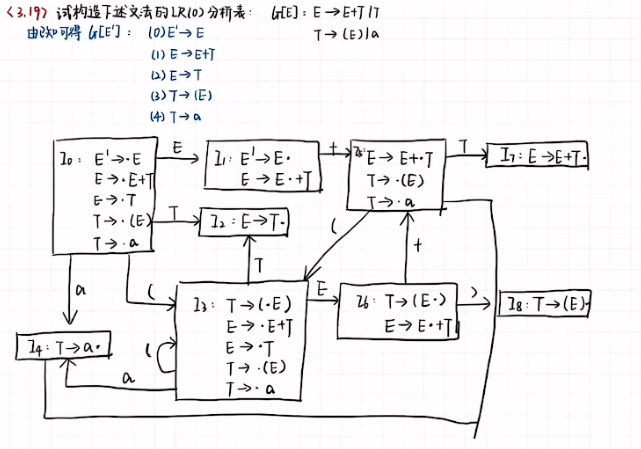 <3.19> 试构造下述文法的LR(0)分析表: G[E]: E→E+T|T
T→(E)|a
由已知可得 G[E']: (0) E'→E
(1) E→E+T
(2) E→T
(3) T→(E)
(4) T→a
I0: E'→·E
E→·E+T
E→·T
T→·(E)
T→·a
E
I1: E'→E·
E→E·+T
+
I5: E→E+·T
T→·(E)
T→·a
T
I7: E→E+T·
T
I2: E→T·
a
(
T
(
+
I3: T→(·E)
E→·E+T
E→·T
T→·(E)
T→·a
E
I6: T→(E·)
E→E·+T
)
I8: T→(E)·
I4: T→a·
(
a